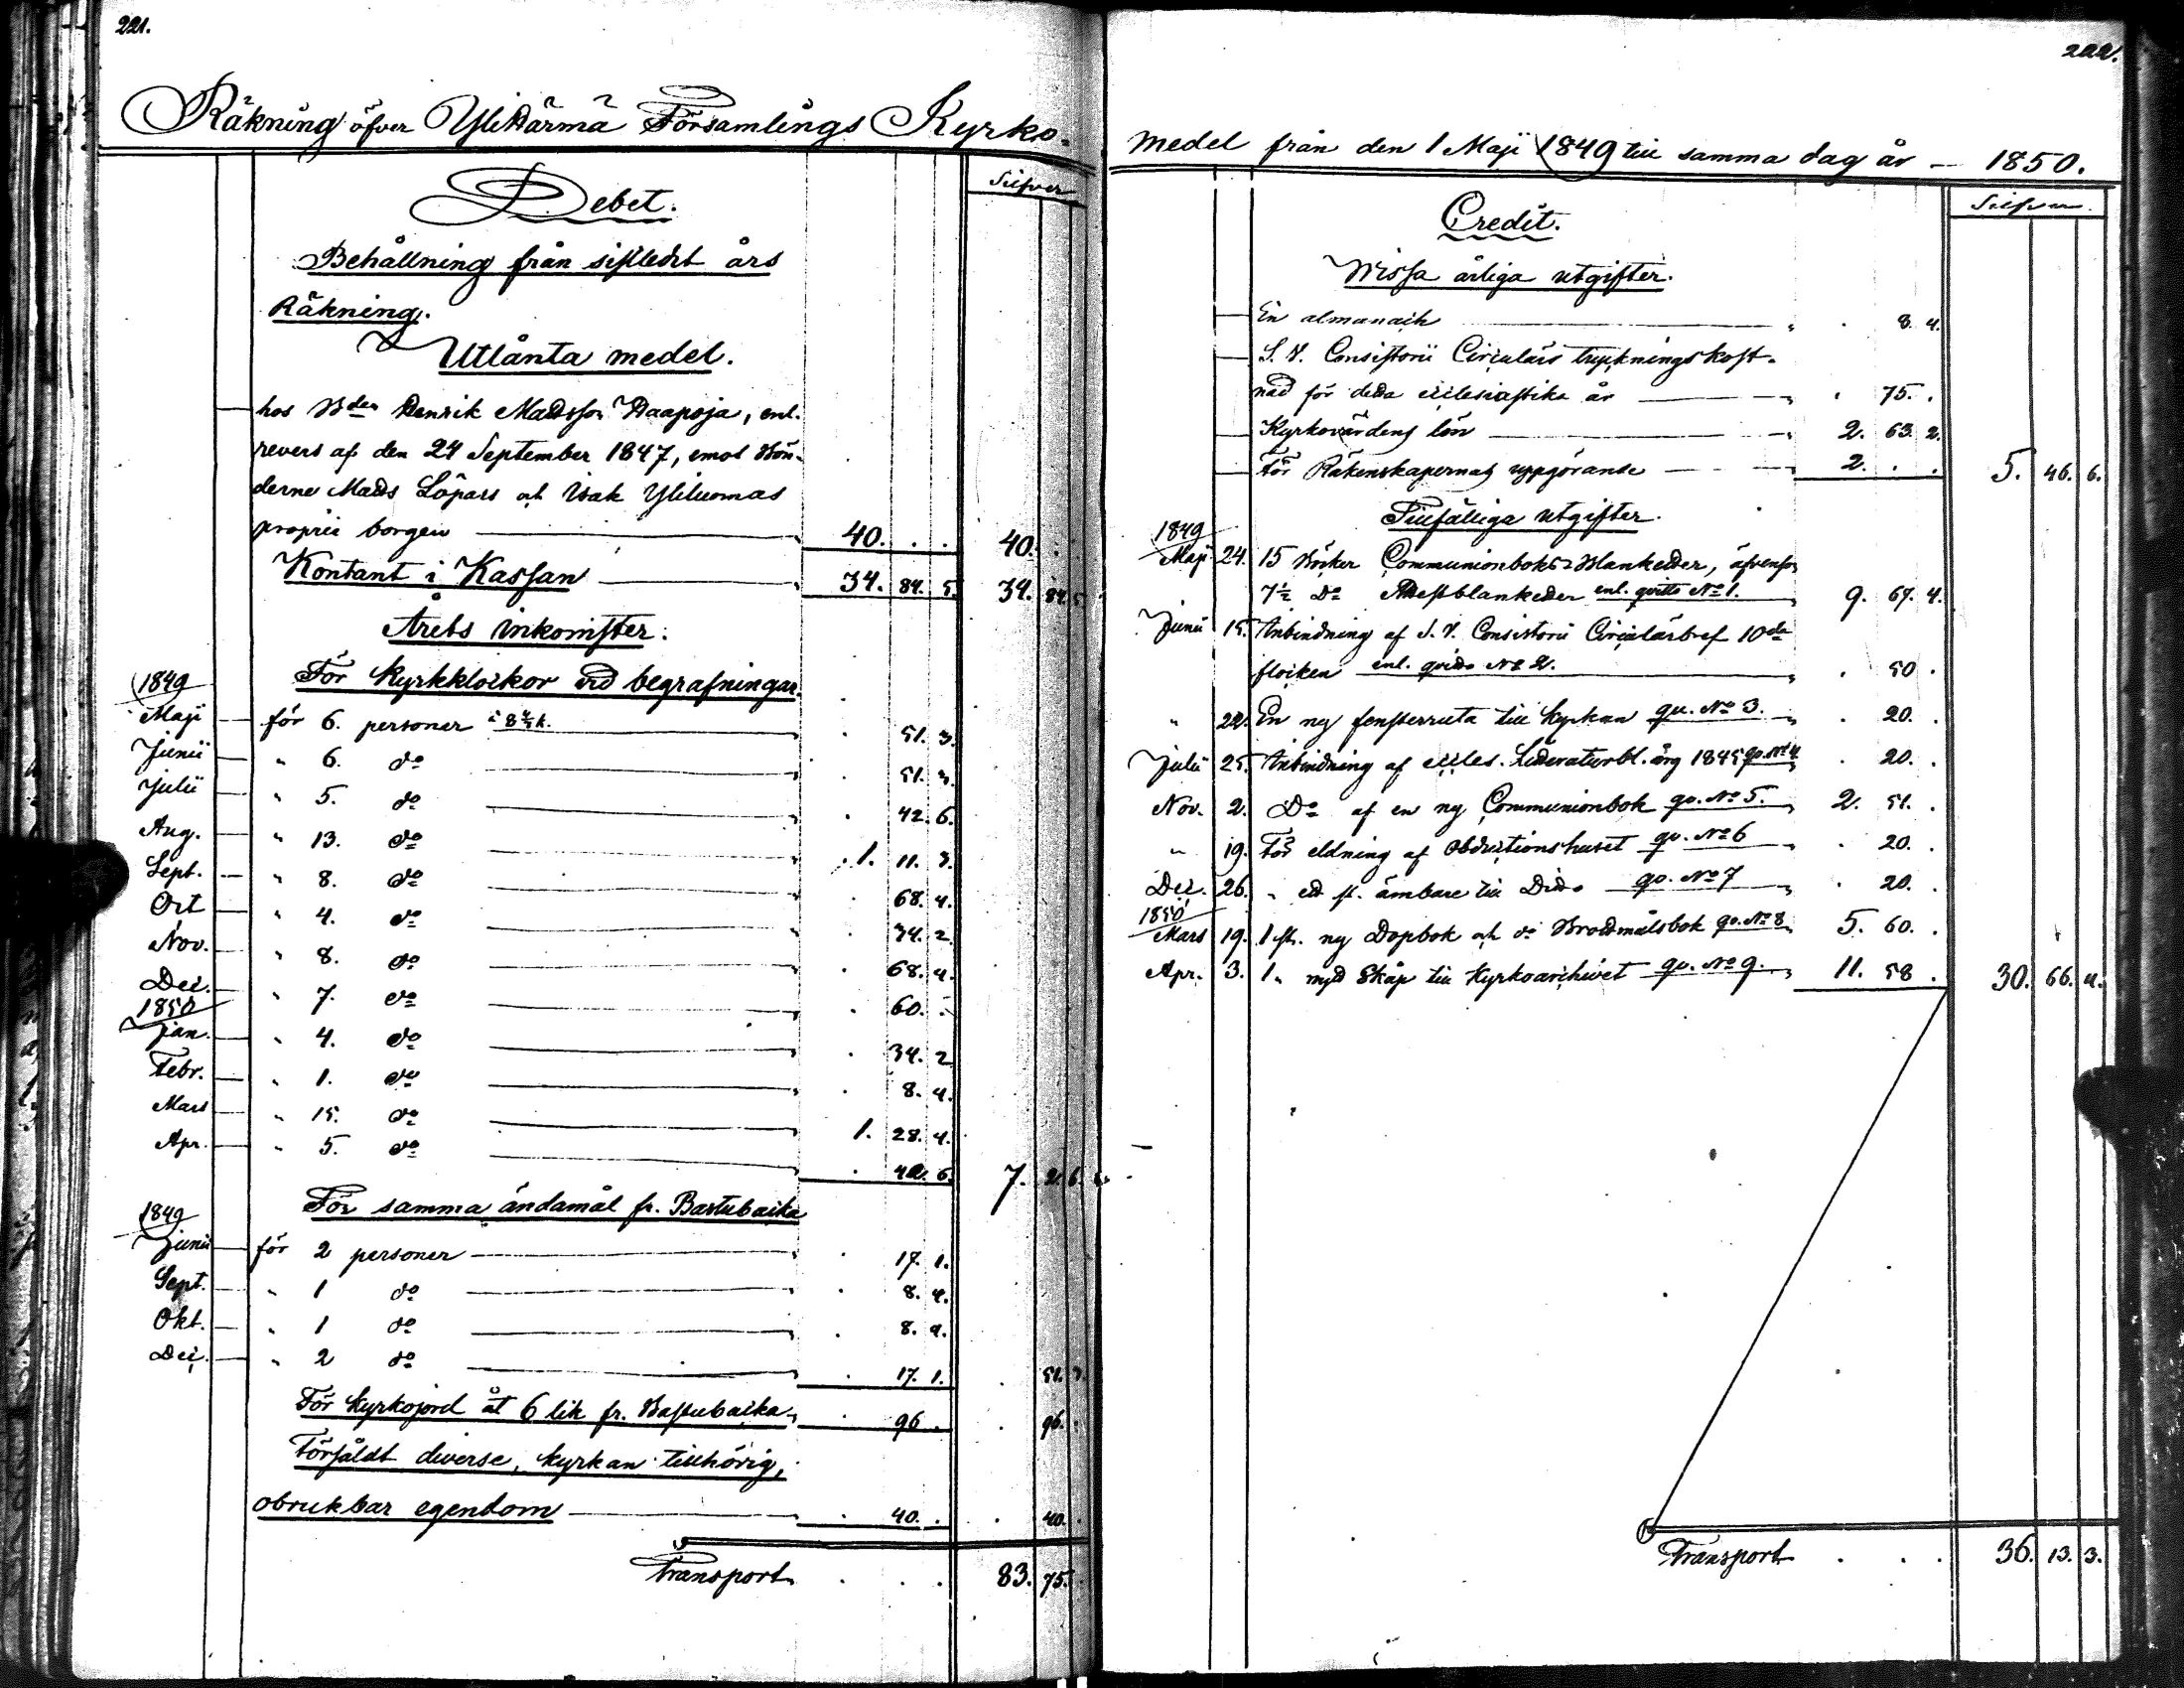 221.
Räkning öfver Ylihärmä Församlings Kyrko-
Silfver
Debet.
Behållning från sistledet års
Räkning.
Utlånta medel.
hos Bden Henrik Madsson Haapoja, enl.
revers af den 24 September 1847, emot Bön-
derne Mads Löpars och Isak Yliluomas
proprie borgen 40. . . 40. . .
Kontant i Kassan 34. 84. 5. 34. 84. 5.
Årets inkomster.
För kyrkklockor vid begrafningar.
1849
Maji för 6. personer à 8 4/7 k. . 51. 3.
Junii " 6. do . 51. 3.
Julii " 5. do . 42. 6.
Aug. " 13. do 1. 11. 3.
Sept. " 8. do . 68. 4.
Oct " 4. do . 34. 2.
Nov. " 8. do . 68. 4.
Dec. " 7. do . 60. .
1850
Jan. " 4. do . 34. 2
Febr. " 1. do . 8. 4.
Mars " 15. do 1. 28. 4.
Apr. " 5. do . 42. 6. 7. 2. 6.
För samma ändamål fr. Bastubacka
1849
Junii för 2 personer . 17. 1.
Sept. " 1 do . 8. 4.
Okt. " 1 do . 8. 4.
Dec. " 2 do . 17. 1. . 51. 3.
För kyrkojord åt 6 lik fr. Bastubacka . 96 . . 96. .
Försåldt diverse, kyrkan tillhörig,
obrukbar egendom . 40. . . 40. .
Transport . . . 83. 75.
222.
medel från den 1 Maji 1849 till samma dag år — 1850.
Silfver
Credit.
Wissa årliga utgifter.
En almanach . 8. 4.
S. V. Consistorii Circulärs tryckningskost-
nad för detta ecclesiastika år . 75. .
Kyrkovärdens lön 2. 63. 2.
För Räkenskapernas uppgörande 2. . . 5. 46. 6.
Tillfälliga utgifter.
1849
Maji 24. 15 Böcker Communionboks-Blanketter, äfvensom
7½ Do Attestblanketter enl. qvitto No 1. 9. 67. 4.
Junii 15. Inbindning af S. V. Consistorii Circulärbref 10de
flocken enl. qvitto No 2. . 50 .
" 22. En ny fensterruta till kyrkan qv. No 3. . 20. .
Julii 25. Inbindning af eccles. Litteraturbl. årg 1845 qv. No 4 . 20. .
Nov. 2. Do af en ny Communionbok qv. No 5. 2. 51. .
" 19. För eldning af Obductionshuset qv. No 6 . 20. .
Dec. 26. " ett st. ämbare till Dito qv. No 7 . 20. .
1850
Mars 19. 1 st. ny Dopbok och do Brottmålsbok qv. No 8. 5. 60. .
Apr. 3. 1 " nytt Skåp till Kyrkoarchivet qv. No 9. 11. 58 . 30. 66. 4.
Transport . . . 36. 13. 3.